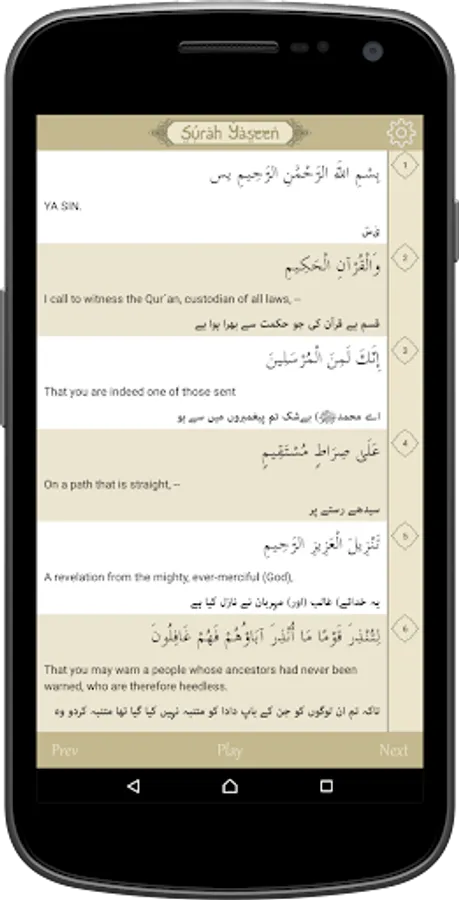 Surah Yaseen
1
بِسْمِ اللَّهِ الرَّحْمَٰنِ الرَّحِيمِ يس
YA SIN.
یٰسٓ
2
وَالْقُرْآنِ الْحَكِيمِ
I call to witness the Qur'an, custodian of all laws, –
قسم ہے قرآن کی جو حکمت سے بھرا ہوا ہے
3
إِنَّكَ لَمِنَ الْمُرْسَلِينَ
That you are indeed one of those sent
اے محمدﷺ) بےشک تم پیغمبروں میں سے ہو
4
عَلَىٰ صِرَاطٍ مُسْتَقِيمٍ
On a path that is straight, –
سیدھے رستے پر
5
تَنْزِيلَ الْعَزِيزِ الرَّحِيمِ
A revelation from the mighty, ever-merciful (God),
یہ خدائے) غالب (اور) مہربان نے نازل کیا ہے
6
لِتُنْذِرَ قَوْمًا مَا أُنْذِرَ آبَاؤُهُمْ فَهُمْ غَافِلُونَ
That you may warn a people whose ancestors had never been
warned, who are therefore heedless.
تاکہ تم ان لوگوں کو جن کے باپ دادا کو متنبہ نہیں کیا گیا تھا متنبہ کردو وہ
Prev
Play
Next